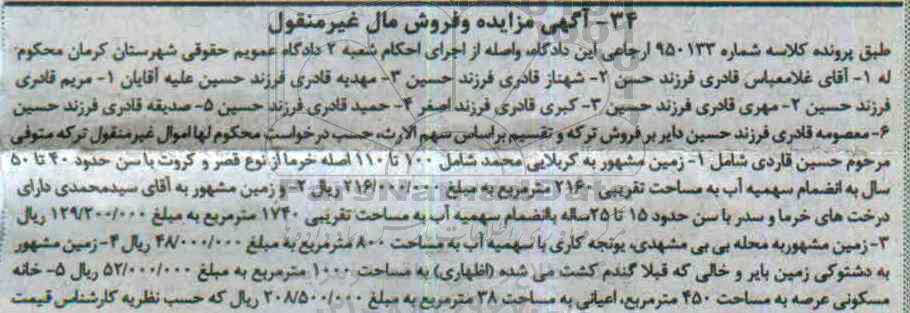 ۳۴- آگهی مزایده وفروش مال غیرمنقول
طبق پرونده کلاسه شماره ۹۵۰۱۳۳ ارجاعی این دادگاه، واصله از اجرای احکام شعبه ۲ دادگاه عمویم حقوقی شهرستان کرمان محکوم
له ۱- آقای غلامعباس قادری فرزند حسن ۲- شهناز قادری فرزند حسین ۳- مهدیه قادری فرزند حسین علیه آقایان ۱- مریم قادری
فرزند حسین ۲- مهری قادری فرزند حسین ۳- کبری قادری فرزند اصغر ۴- حمید قادری فرزند حسین ۵- صدیقه قادری فرزند حسین
۶- معصومه قادری فرزند حسین دایر بر فروش ترکه و تقسیم براساس سهم الارث، حسب درخواست محکوم لها اموال غیرمنقول ترکه متوفی
مرحوم حسین قاردی شامل ۱- زمین مشهور به کربلایی محمد شامل ۱۰۰ تا ۱۱۰ اصله خرما از نوع قصر و کروت با سن حدود ۴۰ تا ۵۰
سال به انضمام سهمیه آب به مساحت تقریبی ۲۱۶۰ مترمربع به مبلغ ۲۱۶/۰۰۰/۰۰۰ ریال ۲- و زمین مشهور به آقای سیدمحمدی دارای
درخت های خرما و سدر با سن حدود ۱۵ تا ۲۵ساله بانضمام سهمیه آب به مساحت تقریبی ۱۷۴۰ مترمربع به مبلغ ۱۲۹/۲۰۰/۰۰۰ ریال
۳- زمین مشهوربه محله بی بی مشهدی، یونجه کاری با سهمیه آب به مساحت ۸۰۰ مترمربع به مبلغ ۴۸/۰۰۰/۰۰۰ ریال ۴- زمین مشهور
به دشتوکی زمین بایر و خالی که قبلا گندم کشت می شده (اظهاری) به مساحت ۱۰۰۰ مترمربع به مبلغ ۵۲/۰۰۰/۰۰۰ ریال ۵- خانه
مسکونی عرصه به مساحت ۴۵۰ مترمربع، اعیانی به مساحت ۳۸ مترمربع به مبلغ ۲۰۸/۵۰۰/۰۰۰ ریال که حسب نظریه کارشناس قیمت